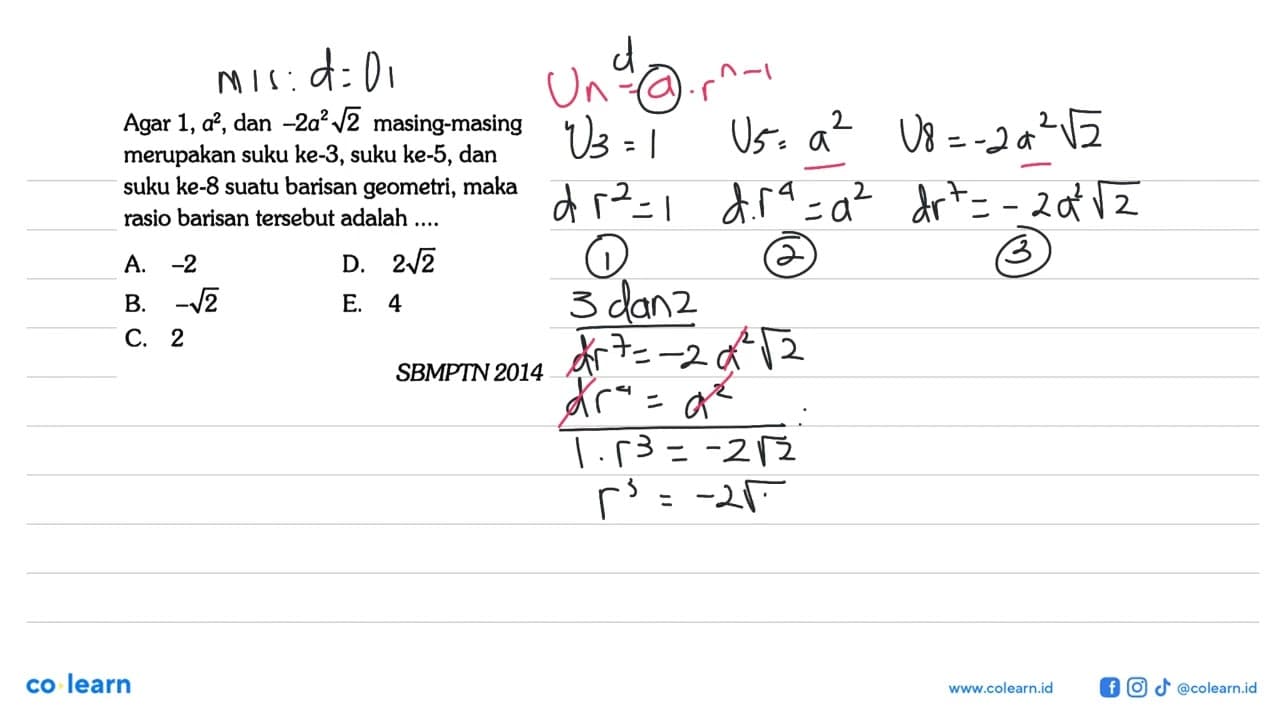 MIS: d = U1
Agar 1, a², dan -2a²√2 masing-masing
merupakan suku ke-3, suku ke-5, dan
suku ke-8 suatu barisan geometri, maka
rasio barisan tersebut adalah ....
A. -2
B. -√2
C. 2
D. 2√2
E. 4
SBMPTN 2014
d
Un = a . r^n-1
U3 = 1 U5 = a² U8 = -2a²√2
dr² = 1 d.r⁴ = a² dr⁷ = -2a²√2
1 2 3
3 dan 2
dr⁷ = -2a²√2
dr⁴ = a² :
1 . r³ = -2√2
r³ = -2√
co learn
www.colearn.id @colearn.id